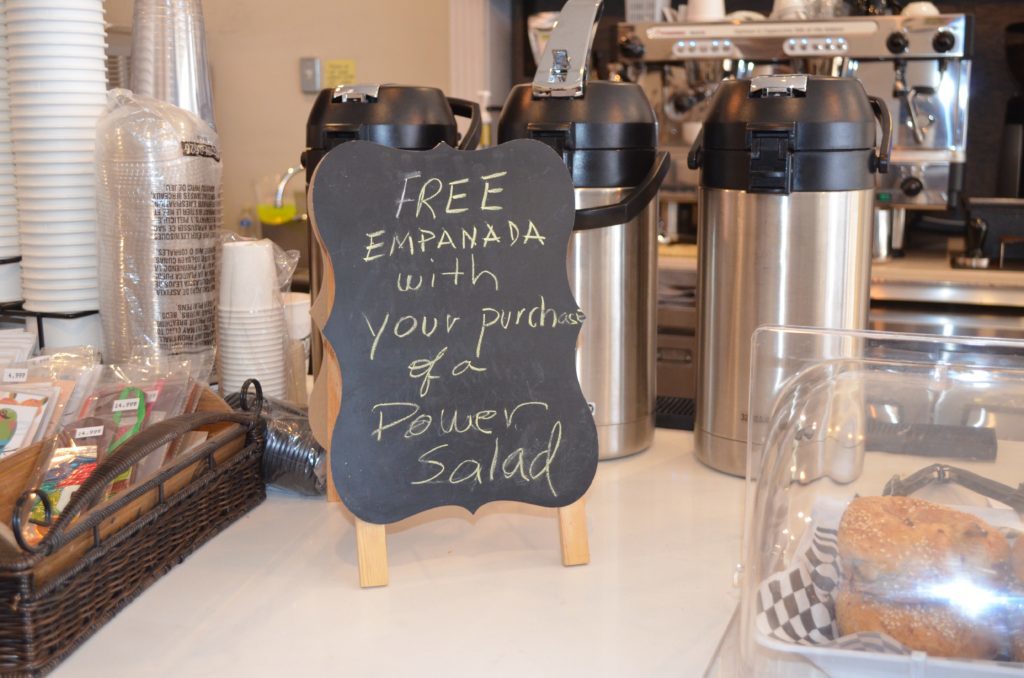 FREE
EMPANADA
with
your purchase
of a
Power
Salad